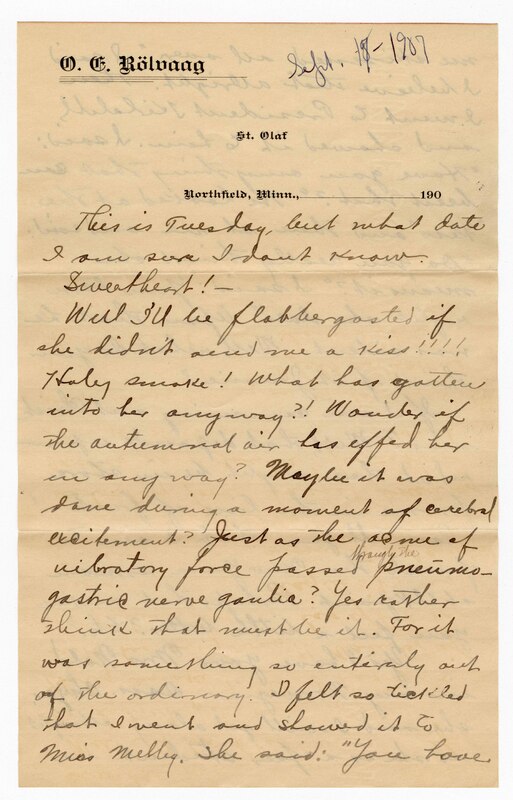 O. E. Rölvaag
Sept. 18-1907
St. Olaf
Northfield, Minn., 190
This is Tuesday, but what date
I am sure I dont know.
Sweetheart! –
Well I'll be flabbergasted if
she didn't send me a kiss!!!!
Holey smoke! What has gotten
into her anyway?! Wonder if
the autumnal air has effed her
in any way? Maybe it was
done during a moment of cerebral
excitement? Just as the acme of
vibratory force passed through the pneumo-
gastric nerve ganlia? Yes rather
think that must be it. For it
was something so entirely out
of the ordinary. I felt so tickled
that I went and showed it to
Miss Mellby. She said: "You have